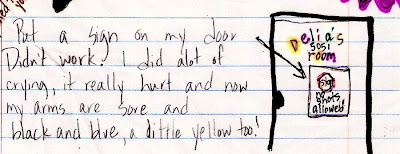 Put a sign on my door
Didn't work. I did alot of
crying, it really hurt and now
my arms are sore and
black and blue, a dittle yellow too!
Delia's
room
no
shots
allowed